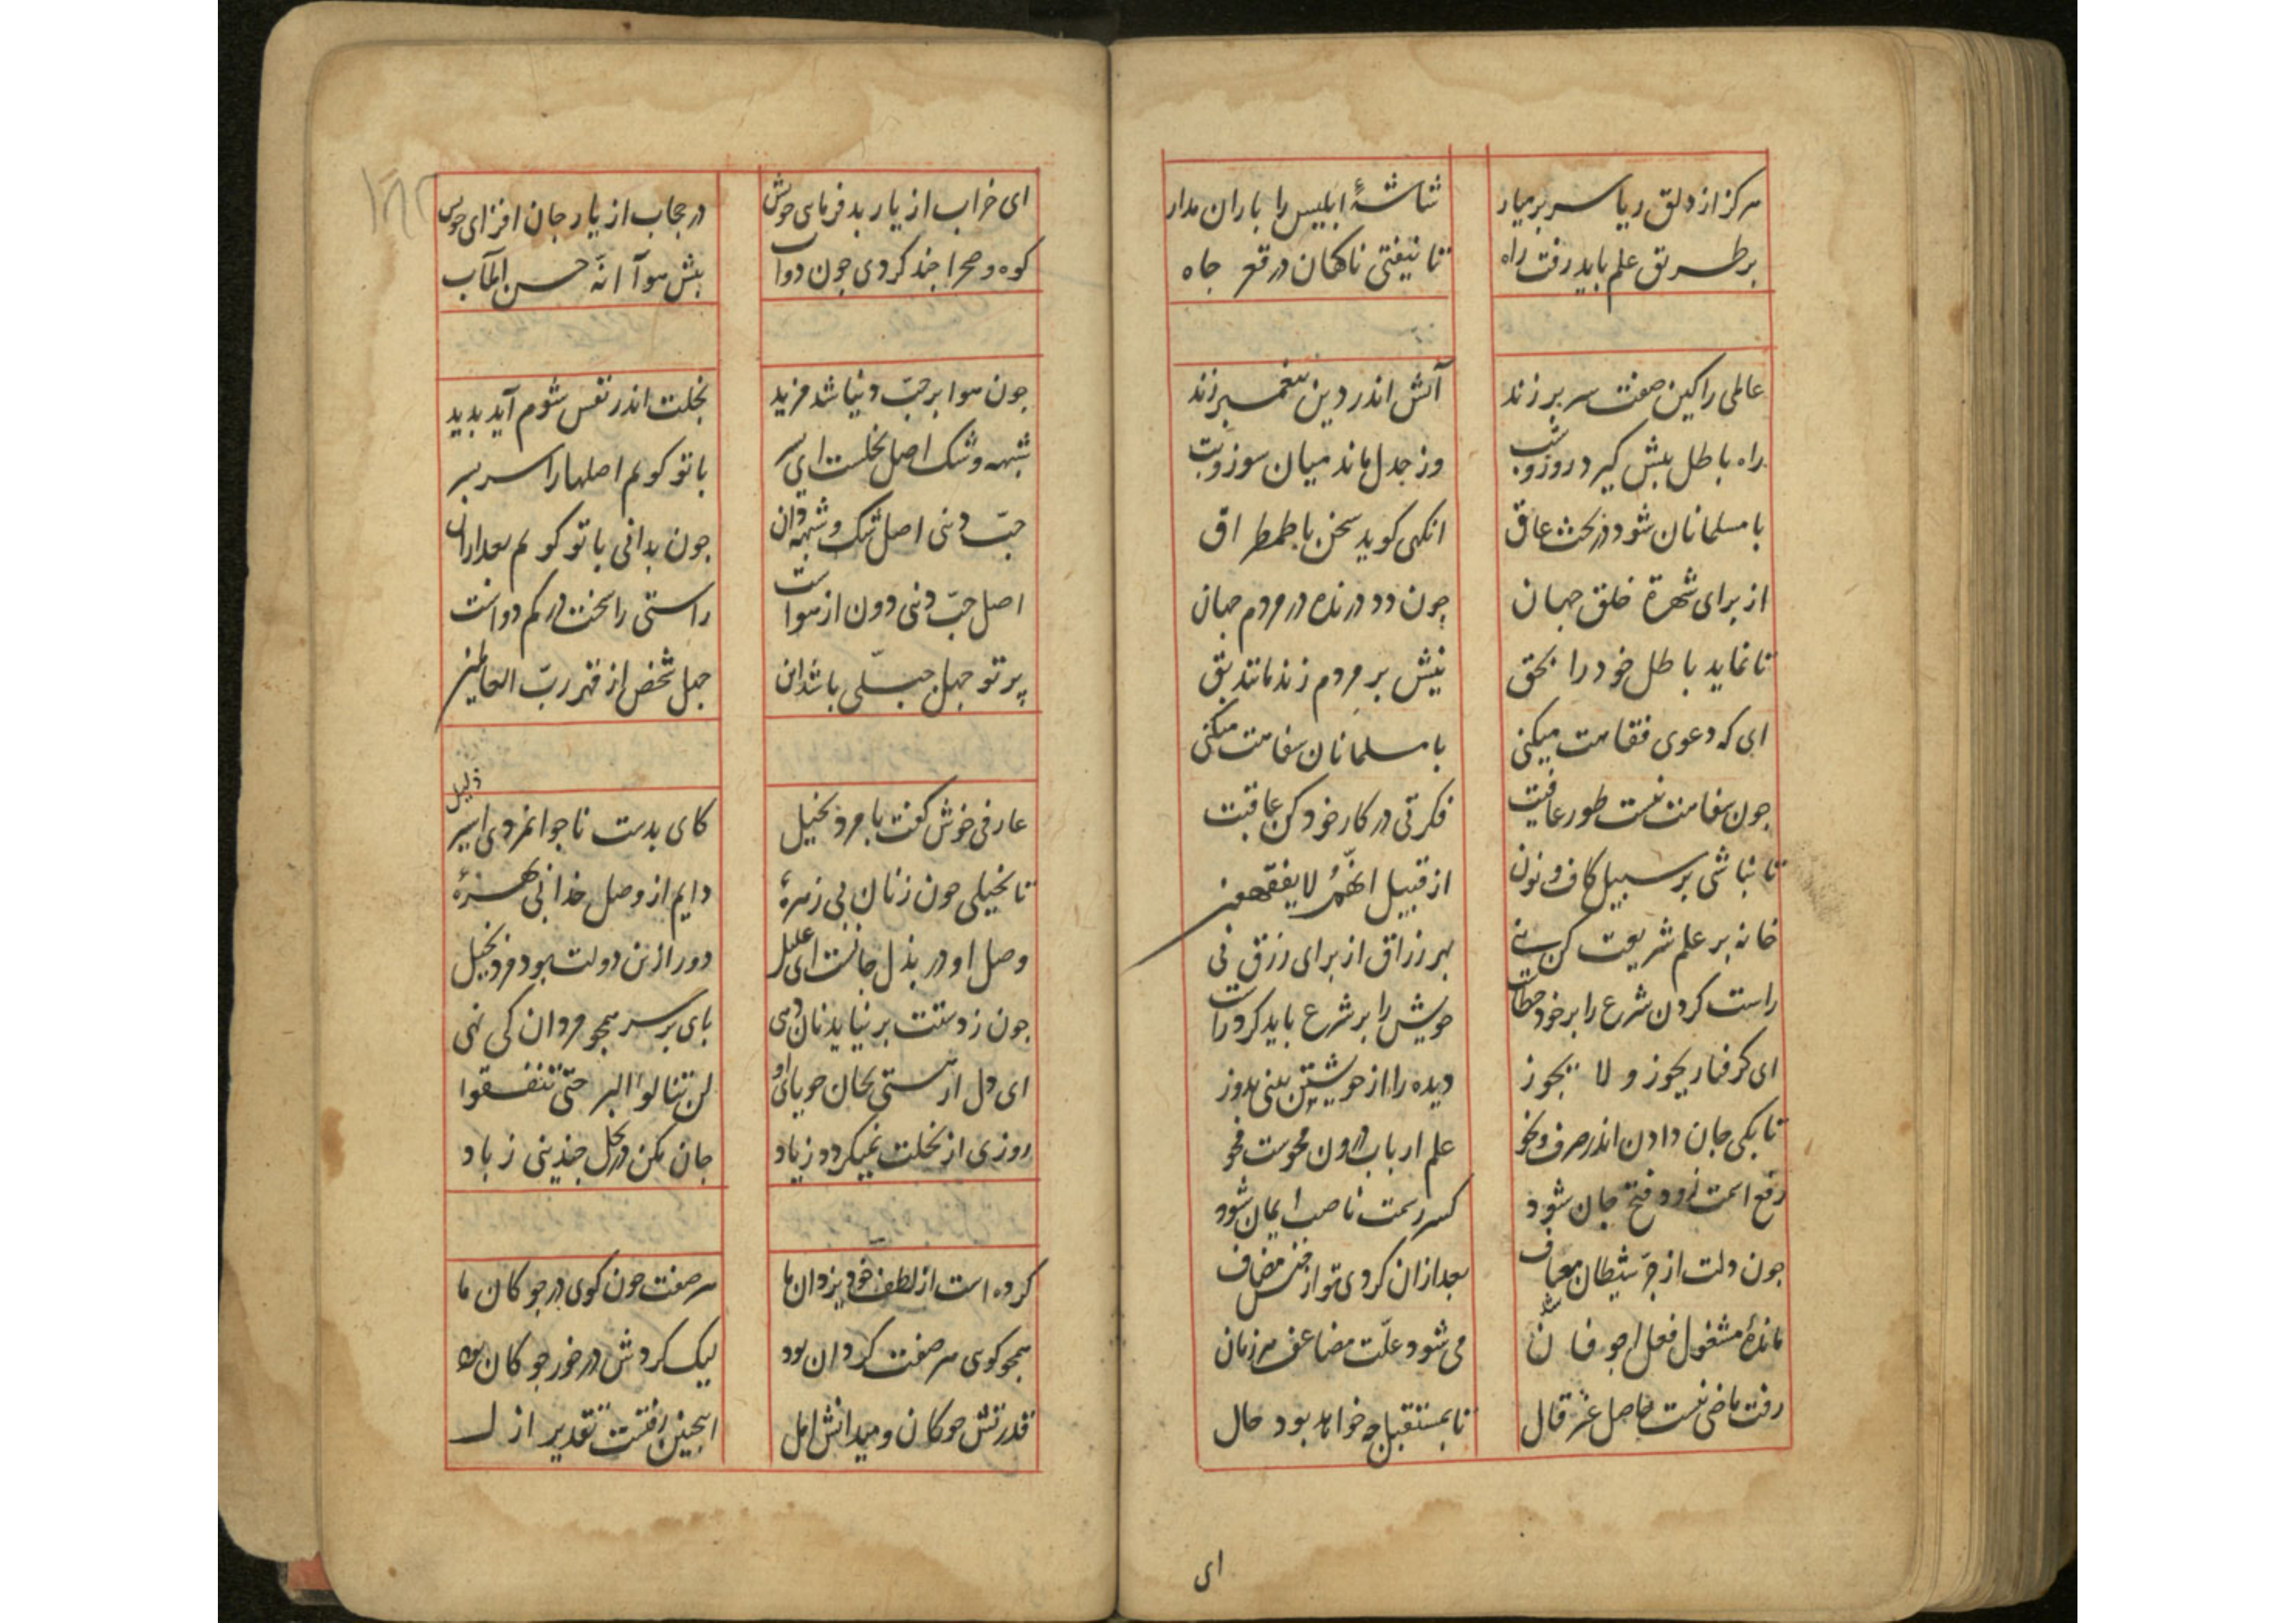 هرکز از دلق ریا سر بر میار
شاشهٔ ابلیس را باران مدار
بر طریق علم باید رفت راه
تا نیفتی ناکهان در قعر جاه
عالمی را کین صفت سر بر زند
آتش اندر دین پیغمبر زند
راه باطل پیش کیرد روز و شب
وز جدل ماند میان سوز و تب
با مسلمانان شود در بحث عاق
انکهی کوید سخن با طمطراق
از برای شهرة خلق جهان
چون دد درنده در مردم جهان
تا نماید باطل خود را بحق
نیش بر مردم زند مانند بق
ای که دعوی فقاهت میکنی
با مسلمانان سفاهت میکنی
جون سفاهت نیست طور عافیت
فکرتی در کار خود کن عاقبت
تا نباشی بر سبیل کاف و نون
از قبیل انهم لا یفقهون
خانه بر علم شریعت کن بنی
بهر رزاق از برای رزق نی
راست کردن شرع را بر خود خطاست
خویش را بر شرع باید کرد راست
ای کرفتار یجوز و لا یجوز
دیده را از خویشتن بینی بدوز
تا بکی جان دادن اندر صرف و نحو
علم ارباب درون محوست محو
رفع اسمت زود فتح جان شود
کسر رسمت ناصب ایمان شود
جون دلت از جر شیطان شد معاف
بعد ازان کردی تو از فنش مضاف
ماندهٔ مشغول فعل اجوفان
می شود علت مضاعف هر زمان
رفت ماضی نیست حاصل غیر قال
تا بمستقبل چه خواهد بود حال
ای
ای خراب از یار بد فرمای خویش
در حجاب از یار جان افزای خویش
کوه و صحرا جند کردی جون دواب
پیش هو آ انه حسن المآب
جون هوا بر حب دنیا شد مزید
بخلت اندر نفس شوم آید بدید
شبهه و شک اصل بخلست ای پسر
با تو کویم اصلها را سر بسر
حب دنی اصل شک و شبهه دان
جون بدانی با تو کویم بعد ازان
اصل حب دنی دون از هواست
راستی را سخت درکم دواست
پرتو جهل جبلی باشد این
جهل شخص از قهر رب العالمین
عارفی خوش کفت با مرد بخیل
کای بدست ناجوانمردی اسیر ذلیل
تا بخیلی جون زنان بی زهرهٔ
دایم از وصل خدا بی بهرهٔ
وصل او در بذل جانست ای علیل
دور ازین دولت بود مرد بخیل
جون ز دستت بر نیاید نان دهی
بای بر سر همجو مردان کی نهی
ای دل ار هستی بجان جویای او
لن تنالوا البر حتی تنفقوا
روزی از بخلت نمیکردد زیاد
جان مکن در بخل جندینی ز باد
کرده است از لطف خود یزدان ما
هر صفت جون کوی در جوکان ما
همجو کوی هر صفت کردان بود
لیک کردش در خور جوکان بود
قدرتش جوکان و میدانش امل
اینجنین رفتست تقدیر از ل